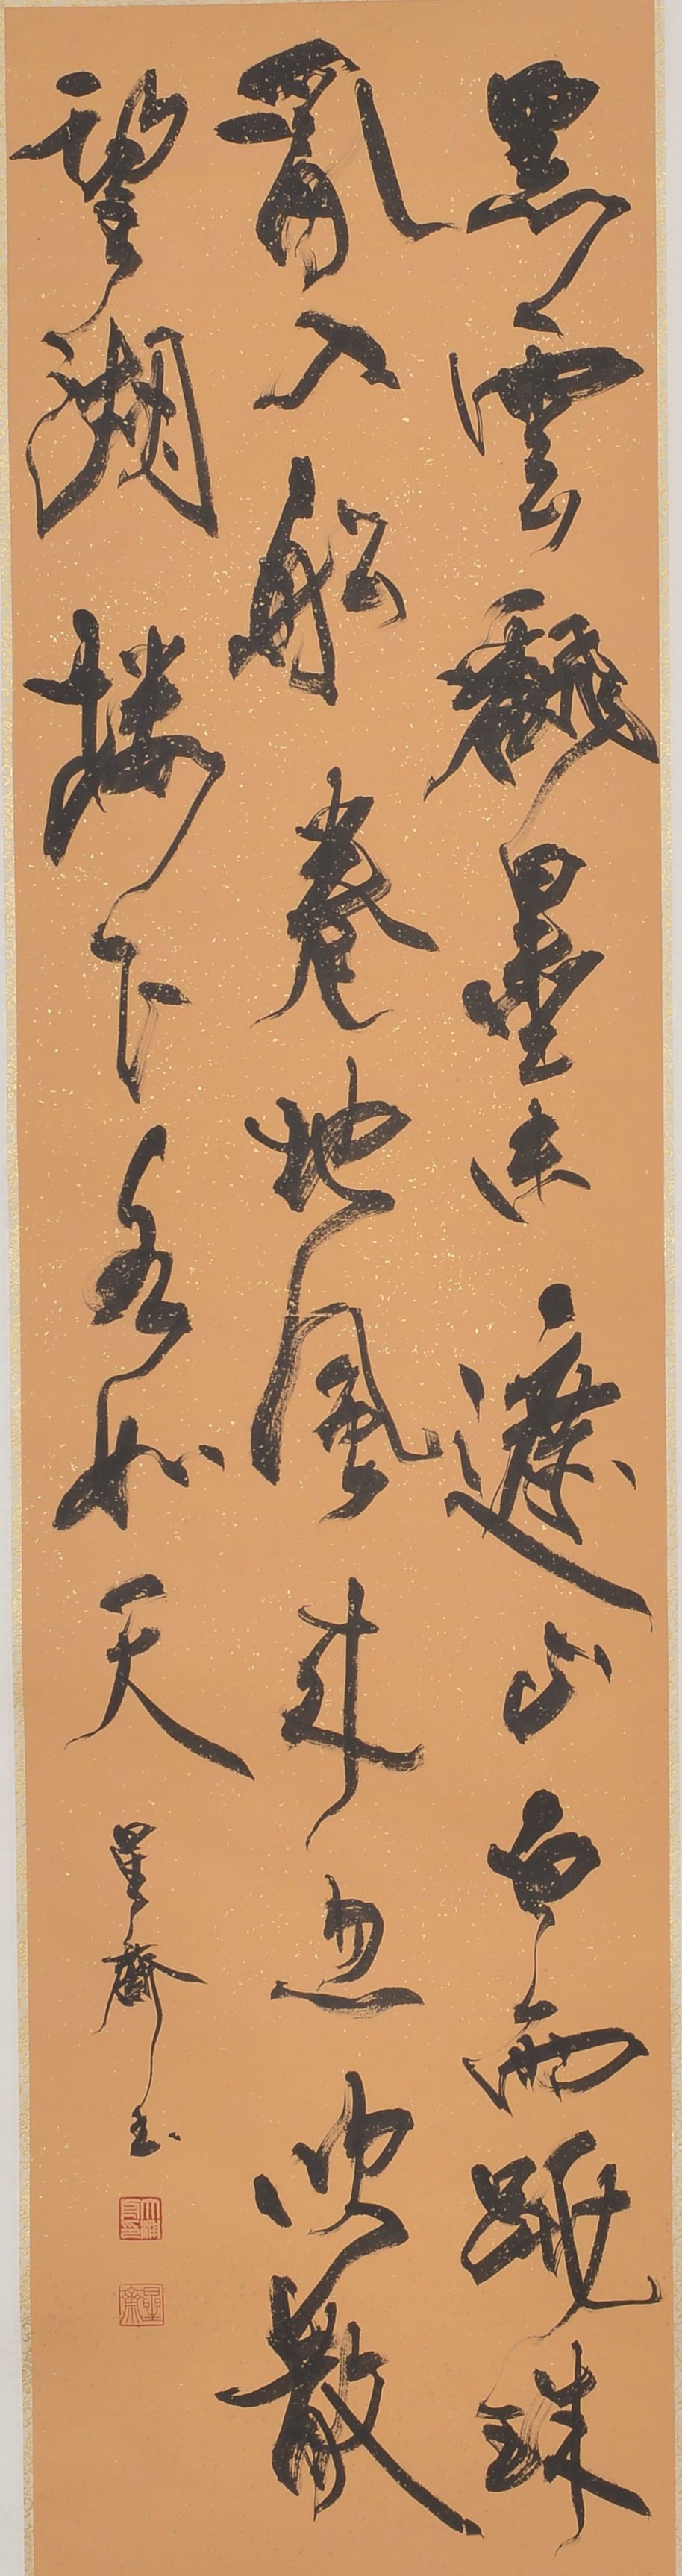 黑雲翻墨未遮山白雨跳珠
亂入船卷地風来忽吹散
望湖樓下水如天
星齋